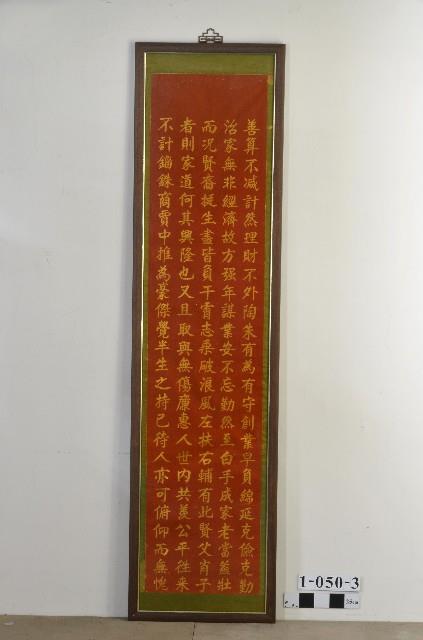 善算不减計然理財不外陶朱有為有守創業早負綿延克儉克勤
治家無非經濟故方强年謀業安不忘勤然至白手成家老當益壯
而況賢裔挺生盡皆負干霄志乘破浪風左扶右輔有此賢父肖子
者則家道何其興隆也又且取與無傷廉惠人世內共羨公平往來
不計錙銖商賈中推為豪傑覺半生之持己待人亦可俯仰而無愧
1-050-3